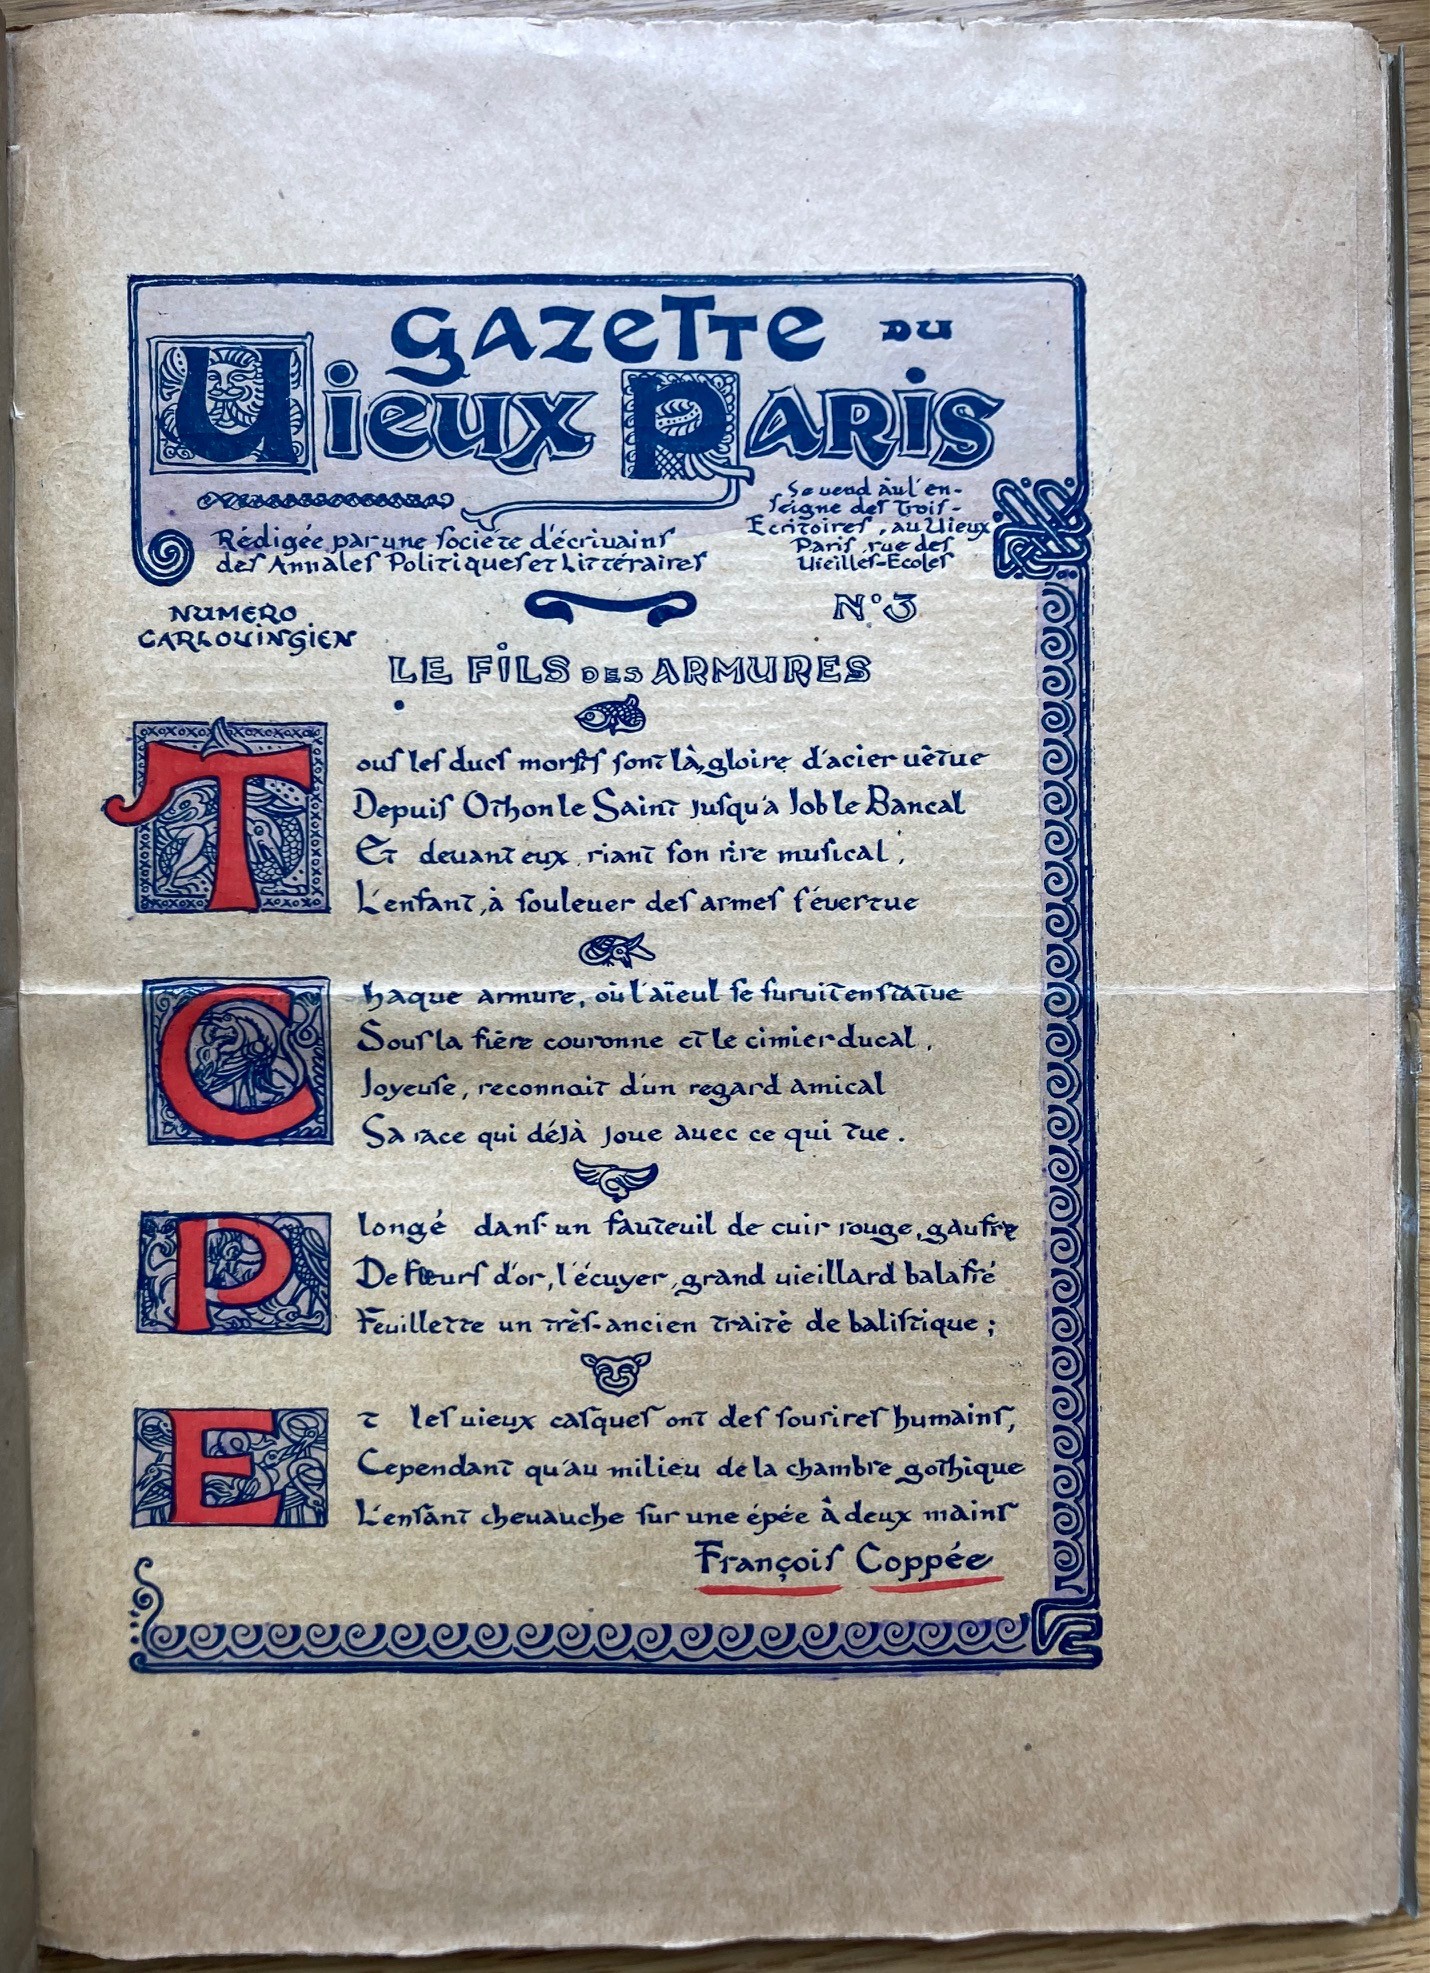 GAZETTE DU
VIEUX PARIS
Rédigée par une société d'écrivains
des Annales Politiques et Littéraires
Se vend à l'en-
seigne des Trois-
Ecritoires, au Vieux
Paris, rue des
Vieilles-Ecoles
NUMERO
CARLOVINGIEN
N° 3
LE FILS DES ARMURES
Tous les ducs morts sont là, gloire d'acier vêtue
Depuis Othon le Saint jusqu'à Job le Bancal
Et devant eux, riant son rire musical,
L'enfant, à soulever des armes s'évertue
Chaque armure, où l'aïeul se survit en statue
Sous la fière couronne et le cimier ducal,
Joyeuse, reconnait d'un regard amical
Sa race qui déjà joue avec ce qui tue.
Plongé dans un fauteuil de cuir rouge, gaufré
De fleurs d'or, l'écuyer, grand vieillard balafré
Feuillette un très-ancien traité de balistique;
Et les vieux casques ont des sourires humains,
Cependant qu'au milieu de la chambre gothique
L'enfant chevauche sur une épée à deux mains
François Coppée